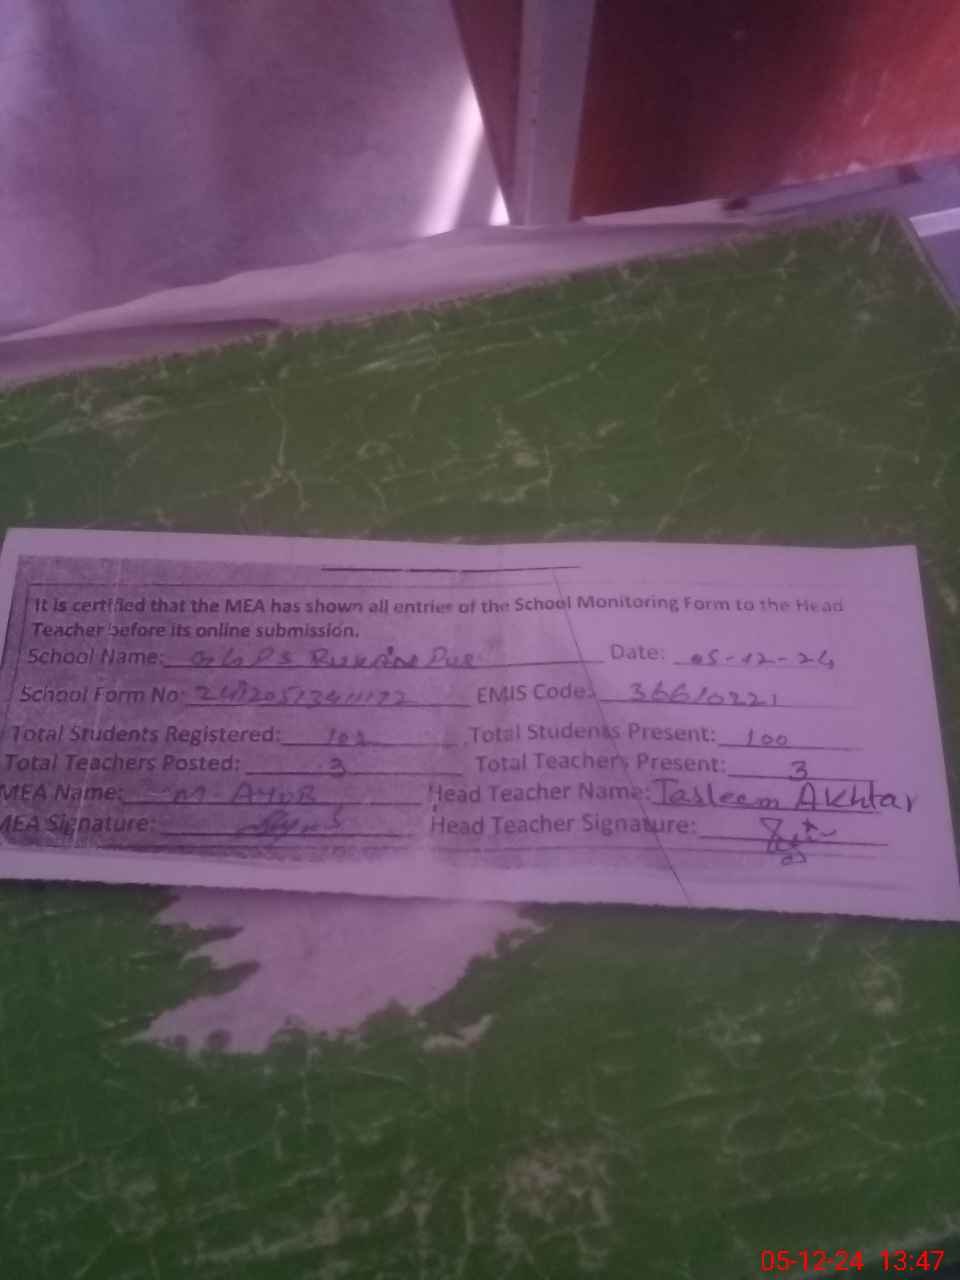 It is certified that the MEA has shown all entries of the School Monitoring Form to the Head
Teacher before its online submission.
School Name: Date: 05-12-24
School Form No: EMIS Code: 36610221
Total Students Registered: 102 Total Students Present: 100
Total Teachers Posted: 3 Total Teachers Present: 3
MEA Name: M. AYUB Head Teacher Name: Tasleem Akhtar
MEA Signature: Head Teacher Signature:
05-12-24 13:47